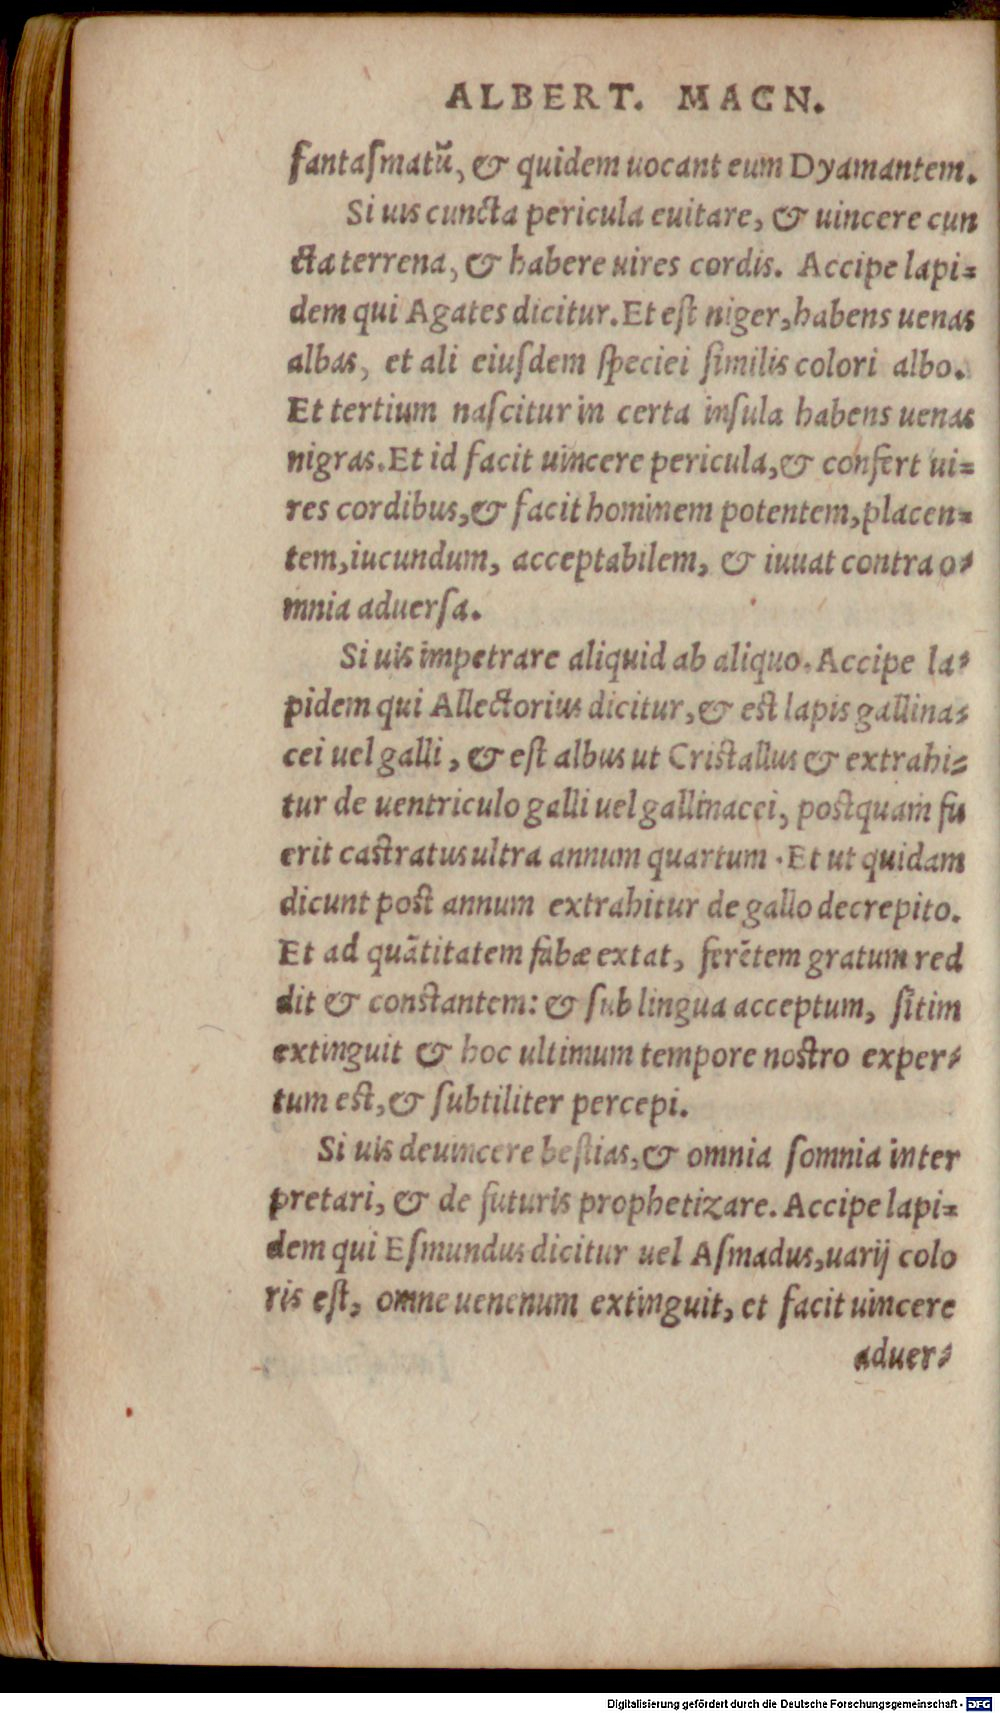 ALBERT. MAGN.
fantaſmatū, & quidem uocant eum Dyamantem.
Si uis cuncta pericula euitare, & uincere cun
cta terrena, & habere uires cordis. Accipe lapi=
dem qui Agates dicitur. Et eſt niger, habens uenas
albas, et ali eiuſdem ſpeciei ſimilis colori albo.
Et tertium naſcitur in certa inſula habens uenas
nigras. Et id facit uincere pericula, & confert ui=
res cordibus, & facit hominem potentem, placen=
tem, iucundum, acceptabilem, & iuuat contra o=
mnia aduerſa.
Si uis impetrare aliquid ab aliquo. Accipe la=
pidem qui Allectorius dicitur, & est lapis gallina=
cei uel galli, & eſt albus ut Cristallus & extrahi=
tur de uentriculo galli uel gallinacei, postquam fu
erit castratus ultra annum quartum. Et ut quidam
dicunt post annum extrahitur de gallo decrepito.
Et ad quātitatem fabæ extat, ferētem gratum red
dit & constantem: & ſub lingua acceptum, ſitim
extinguit & hoc ultimum tempore nostro exper=
tum est, & ſubtiliter percepi.
Si uis deuincere beſtias, & omnia ſomnia inter
pretari, & de futuris prophetizare. Accipe lapi=
dem qui Eſmundus dicitur uel Aſmadus, uarij colo
ris eſt, omne uenenum extinguit, et facit uincere
aduer=
Digitalisierung gefördert durch die Deutsche Forschungsgemeinschaft - DFG